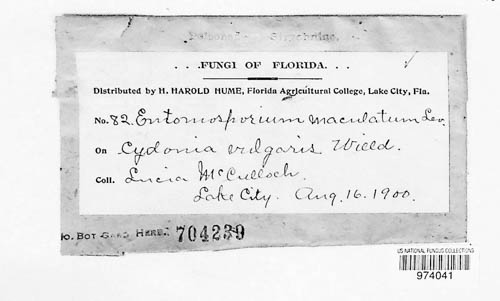 . . .FUNGI OF FLORIDA. . .
Distributed by H. HAROLD HUME, Florida Agricultural College, Lake City, Fla.
No. 82. Entomosporium maculatum Lev.
On Cydonia vulgaris Willd.
Coll. Lucia McCulloch.
Lake City. Aug. 16. 1900.
O. BOT. GARD. HERB. 704239
US NATIONAL FUNGUS COLLECTIONS
974041